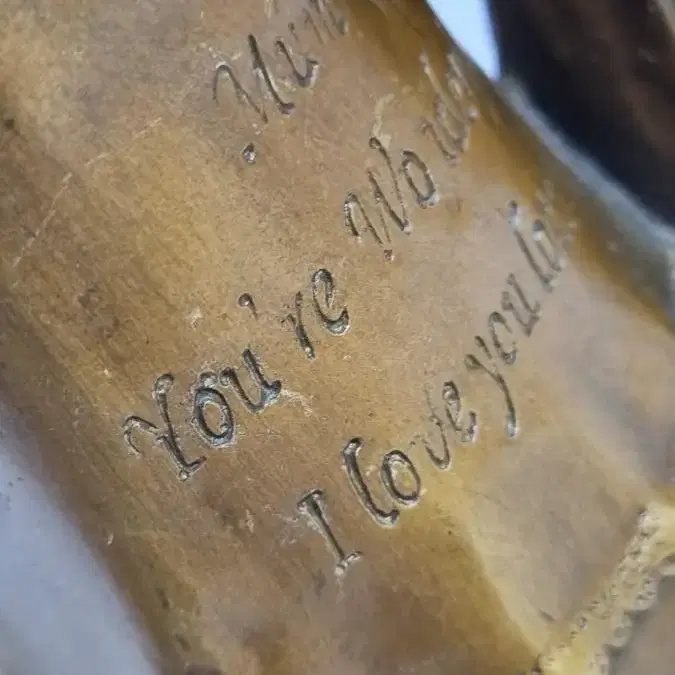 Mum
You're Wo
I love you lo